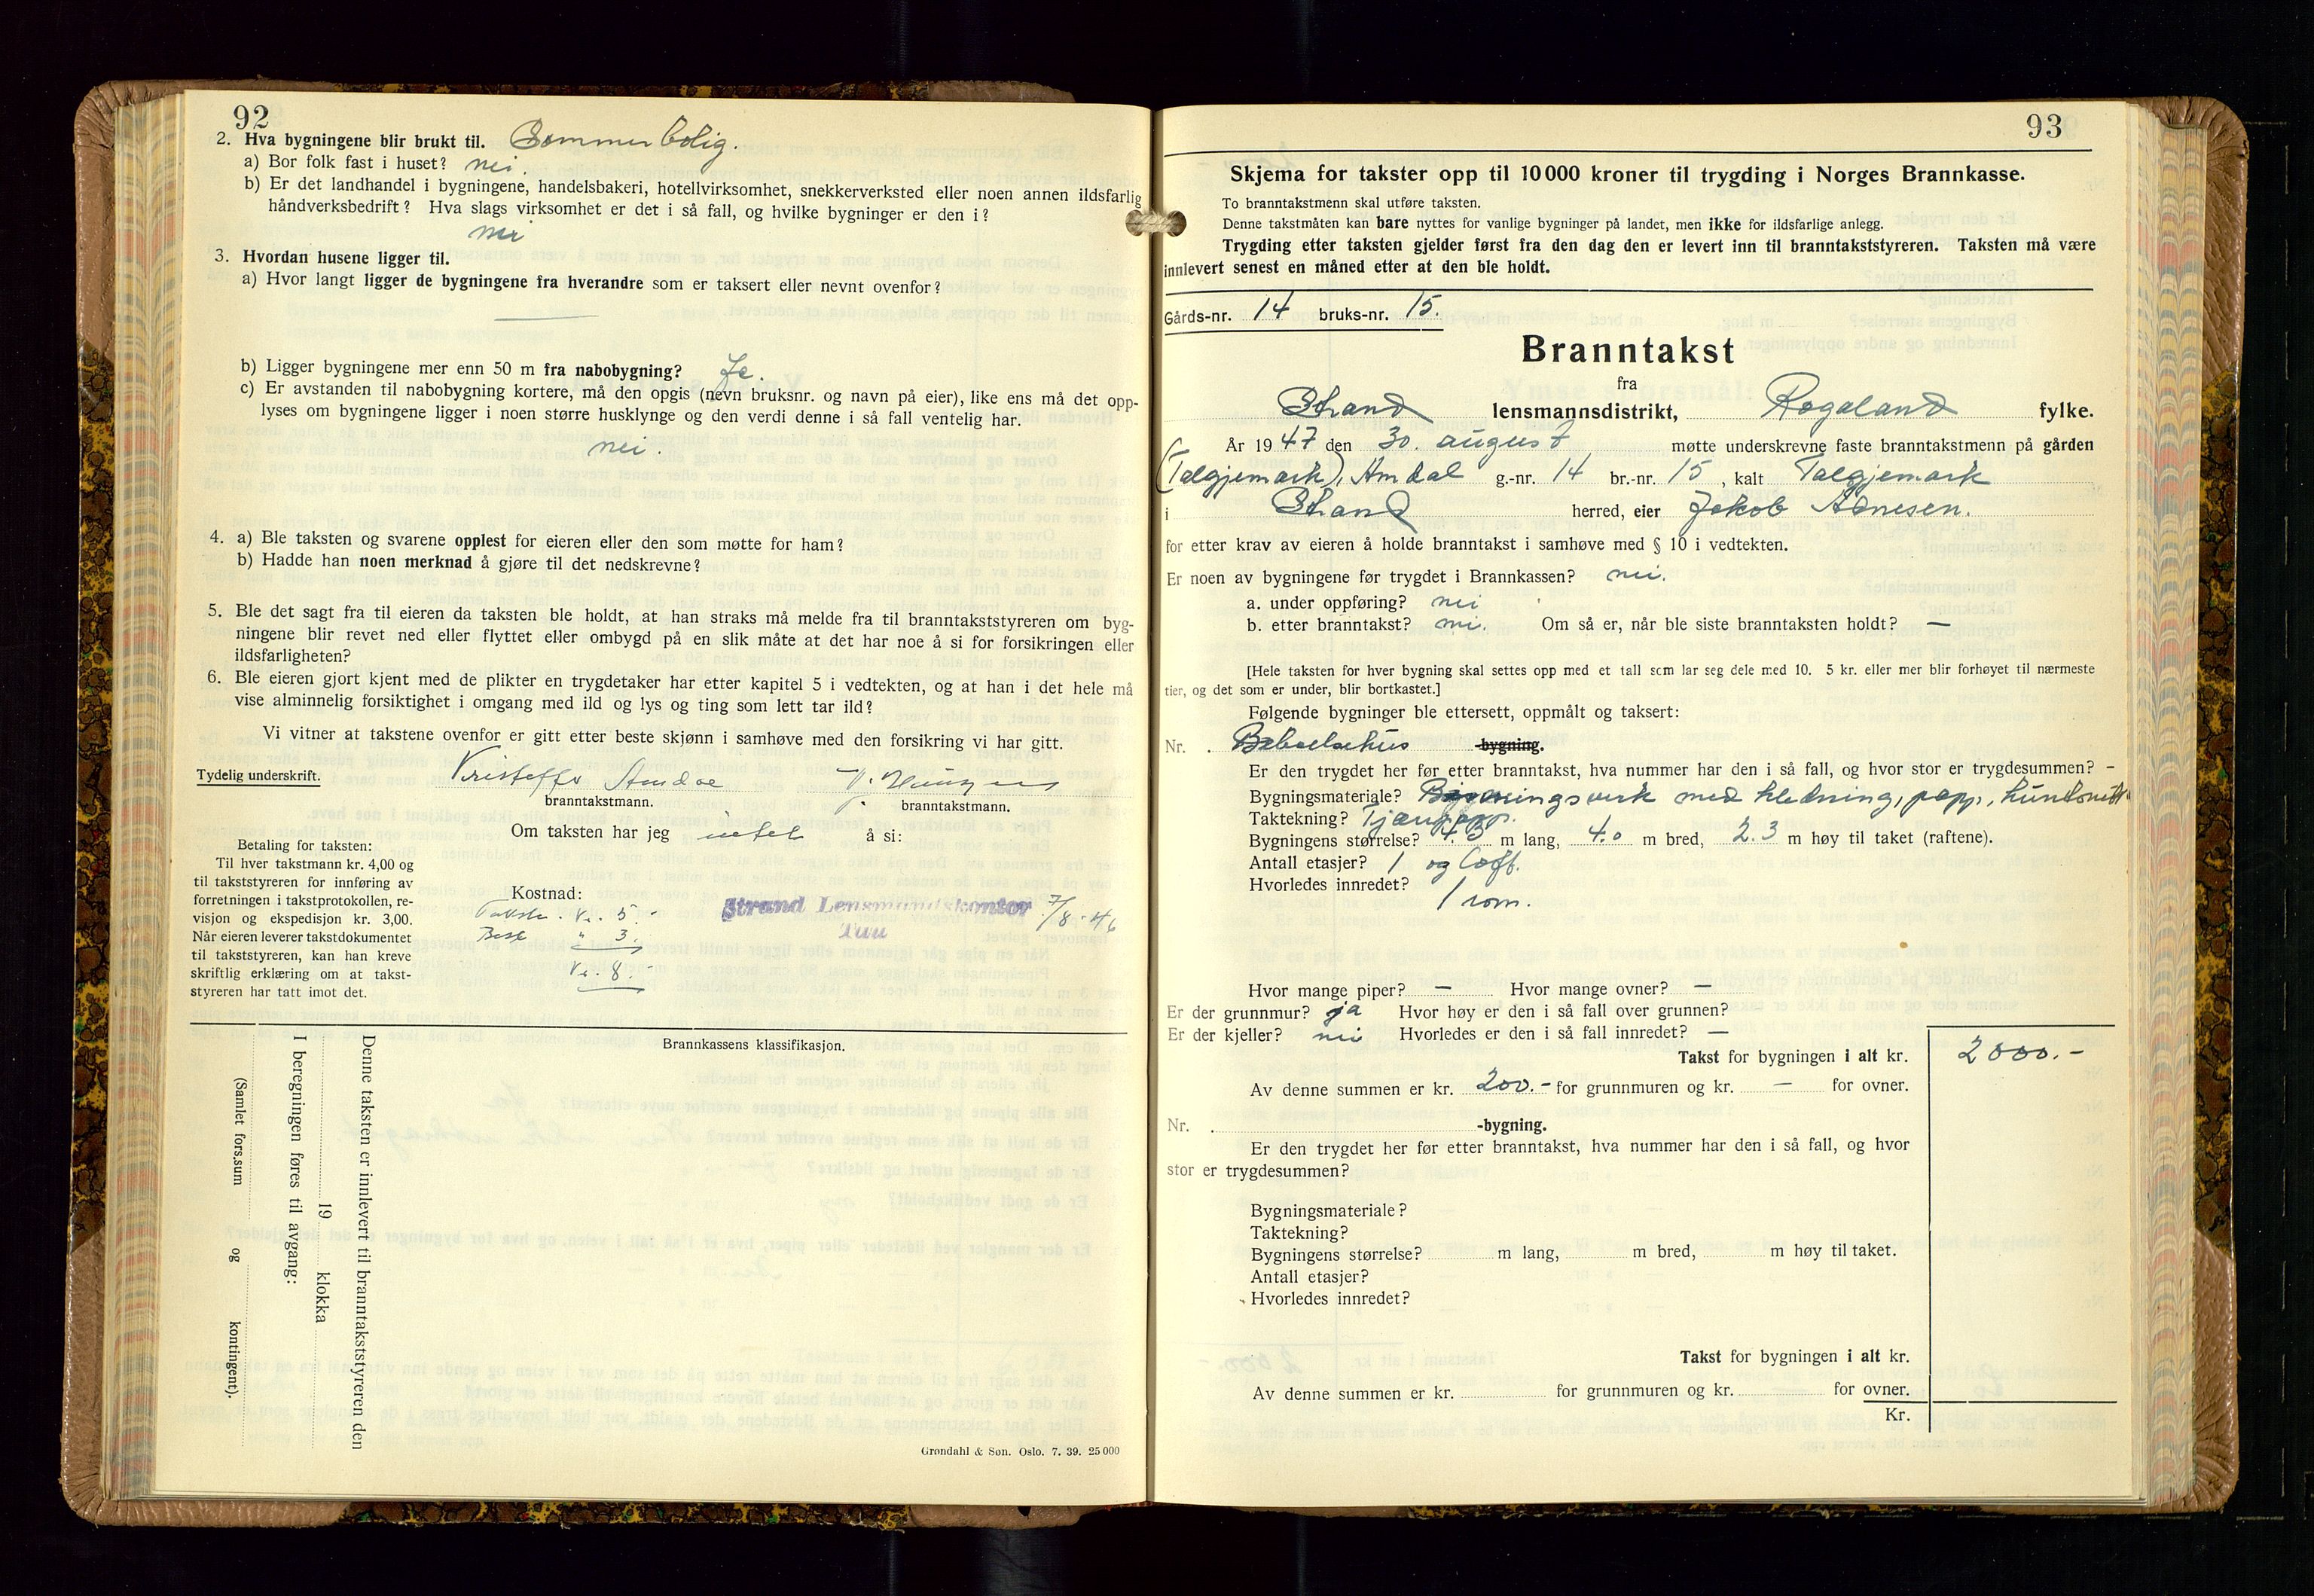 92
2. Hva bygningene blir brukt til. Sommerbolig.
a) Bor folk fast i huset? nei.
b) Er det landhandel i bygningene, handelsbakeri, hotellvirksomhet, snekkerverksted eller noen annen ildsfarlig
håndverksbedrift? Hva slags virksomhet er det i så fall, og hvilke bygninger er den i?
nei
3. Hvordan husene ligger til.
a) Hvor langt ligger de bygningene fra hverandre som er taksert eller nevnt ovenfor?
b) Ligger bygningene mer enn 50 m fra nabobygning? Ja.
c) Er avstanden til nabobygning kortere, må den opgis (nevn bruksnr. og navn på eier), like ens må det opp-
lyses om bygningene ligger i noen større husklynge og den verdi denne i så fall ventelig har.
nei.
4. a) Ble taksten og svarene opplest for eieren eller den som møtte for ham?
b) Hadde han noen merknad å gjøre til det nedskrevne?
5. Ble det sagt fra til eieren da taksten ble holdt, at han straks må melde fra til branntakststyreren om byg-
ningene blir revet ned eller flyttet eller ombygd på en slik måte at det har noe å si for forsikringen eller
ildsfarligheten?
6. Ble eieren gjort kjent med de plikter en trygdetaker har etter kapitel 5 i vedtekten, og at han i det hele må
vise alminnelig forsiktighet i omgang med ild og lys og ting som lett tar ild?
Vi vitner at takstene ovenfor er gitt etter beste skjønn i samhøve med den forsikring vi har gitt.
Tydelig underskrift. Kristoffer Amdal
branntakstmann. branntakstmann.
Om taksten har jeg intet å si:
Betaling for taksten:
Til hver takstmann kr. 4,00 og
til takststyreren for innføring av
forretningen i takstprotokollen, re-
visjon og ekspedisjon kr. 3,00.
Når eieren leverer takstdokumentet
til takststyreren, kan han kreve
skriftlig erklæring om at takst-
styreren har tatt imot det.
Kostnad:
Takstm. Kr. 5.-
" 3.-
Kr. 8.-
Strand Lensmannskontor 7/8-46
Tau
Brannkassens klassifikasjon.
Denne taksten er innlevert til branntakststyreren den
19 klokka
I beregningen føres til avgang:
(Samlet fors.sum og kontingent).
Grøndahl & Søn. Oslo. 7. 39. 25 000
93
Skjema for takster opp til 10 000 kroner til trygding i Norges Brannkasse.
To branntakstmenn skal utføre taksten.
Denne takstmåten kan bare nyttes for vanlige bygninger på landet, men ikke for ildsfarlige anlegg.
Trygding etter taksten gjelder først fra den dag den er levert inn til branntakststyreren. Taksten må være
innlevert senest en måned etter at den ble holdt.
Gårds-nr. 14 bruks-nr. 15.
Branntakst
fra
Strand lensmannsdistrikt, Rogaland fylke.
År 1947 den 30. august møtte underskrevne faste branntakstmenn på gården
(Talgjemark), Amdal g.-nr. 14 br.-nr. 15, kalt Talgjemark
i Strand herred, eier Jakob Adnesen.
for etter krav av eieren å holde branntakst i samhøve med § 10 i vedtekten.
Er noen av bygningene før trygdet i Brannkassen? nei.
a. under oppføring? nei
b. etter branntakst? nei. Om så er, når ble siste branntaksten holdt? —
[Hele taksten for hver bygning skal settes opp med et tall som lar seg dele med 10. 5 kr. eller mer blir forhøyet til nærmeste
tier, og det som er under, blir bortkastet.]
Følgende bygninger ble ettersett, oppmålt og taksert:
Nr. . Beboelsehus -bygning.
Er den trygdet her før etter branntakst, hva nummer har den i så fall, og hvor stor er trygdesummen? -
Bygningsmateriale? Bindingsverk med kledning, papp,
Taktekning? Tjærepapp.
Bygningens størrelse? 4.3 m lang, 4.0 m bred, 2.3 m høy til taket (raftene).
Antall etasjer? 1 og loft.
Hvorledes innredet?
1 rom.
Hvor mange piper? — Hvor mange ovner? —
Er der grunnmur? ja Hvor høy er den i så fall over grunnen?
Er der kjeller? nei Hvorledes er den i så fall innredet? —
Takst for bygningen i alt kr. 2000.-
Av denne summen er kr. 200.- for grunnmuren og kr. — for ovner.
Nr. . -bygning.
Er den trygdet her før etter branntakst, hva nummer har den i så fall, og hvor
stor er trygdesummen?
Bygningsmateriale?
Taktekning?
Bygningens størrelse? m lang, m bred, m høy til taket.
Antall etasjer?
Hvorledes innredet?
Takst for bygningen i alt kr.
Av denne summen er kr. for grunnmuren og kr. for ovner.
Kr.